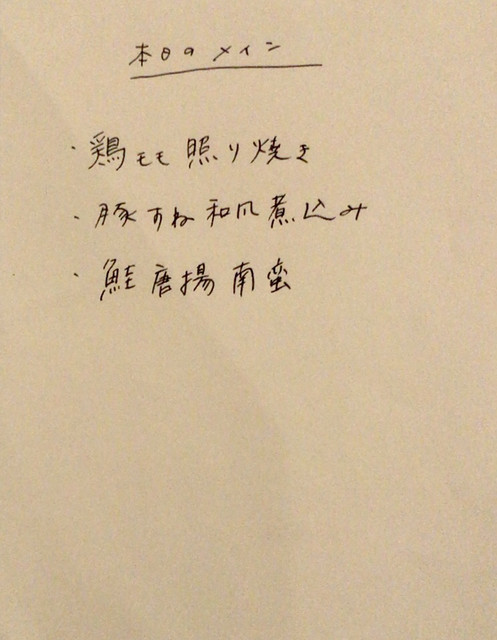 本日のメイン
・鶏モモ照り焼き
・豚すね和風煮込み
・鮭唐揚南蛮